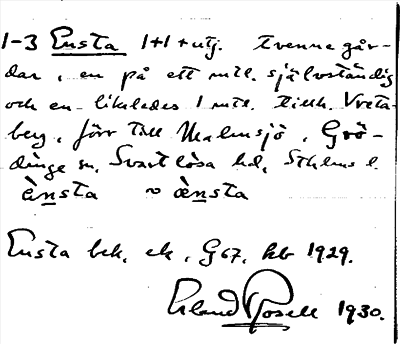 1-3 Ensta 1+1+utj. Tvenne går-
dar, en på ett mtl. självständig
och en likaledes 1 mtl. tillh. Vreta-
berg, förr till Malmsjö, Grö-
dinge sn, Svartlösa hd, Sthlms l.
ènsta ~ ènsta
Ensta bek. ek. G67. hb 1929.
Erland Rosell 1930.